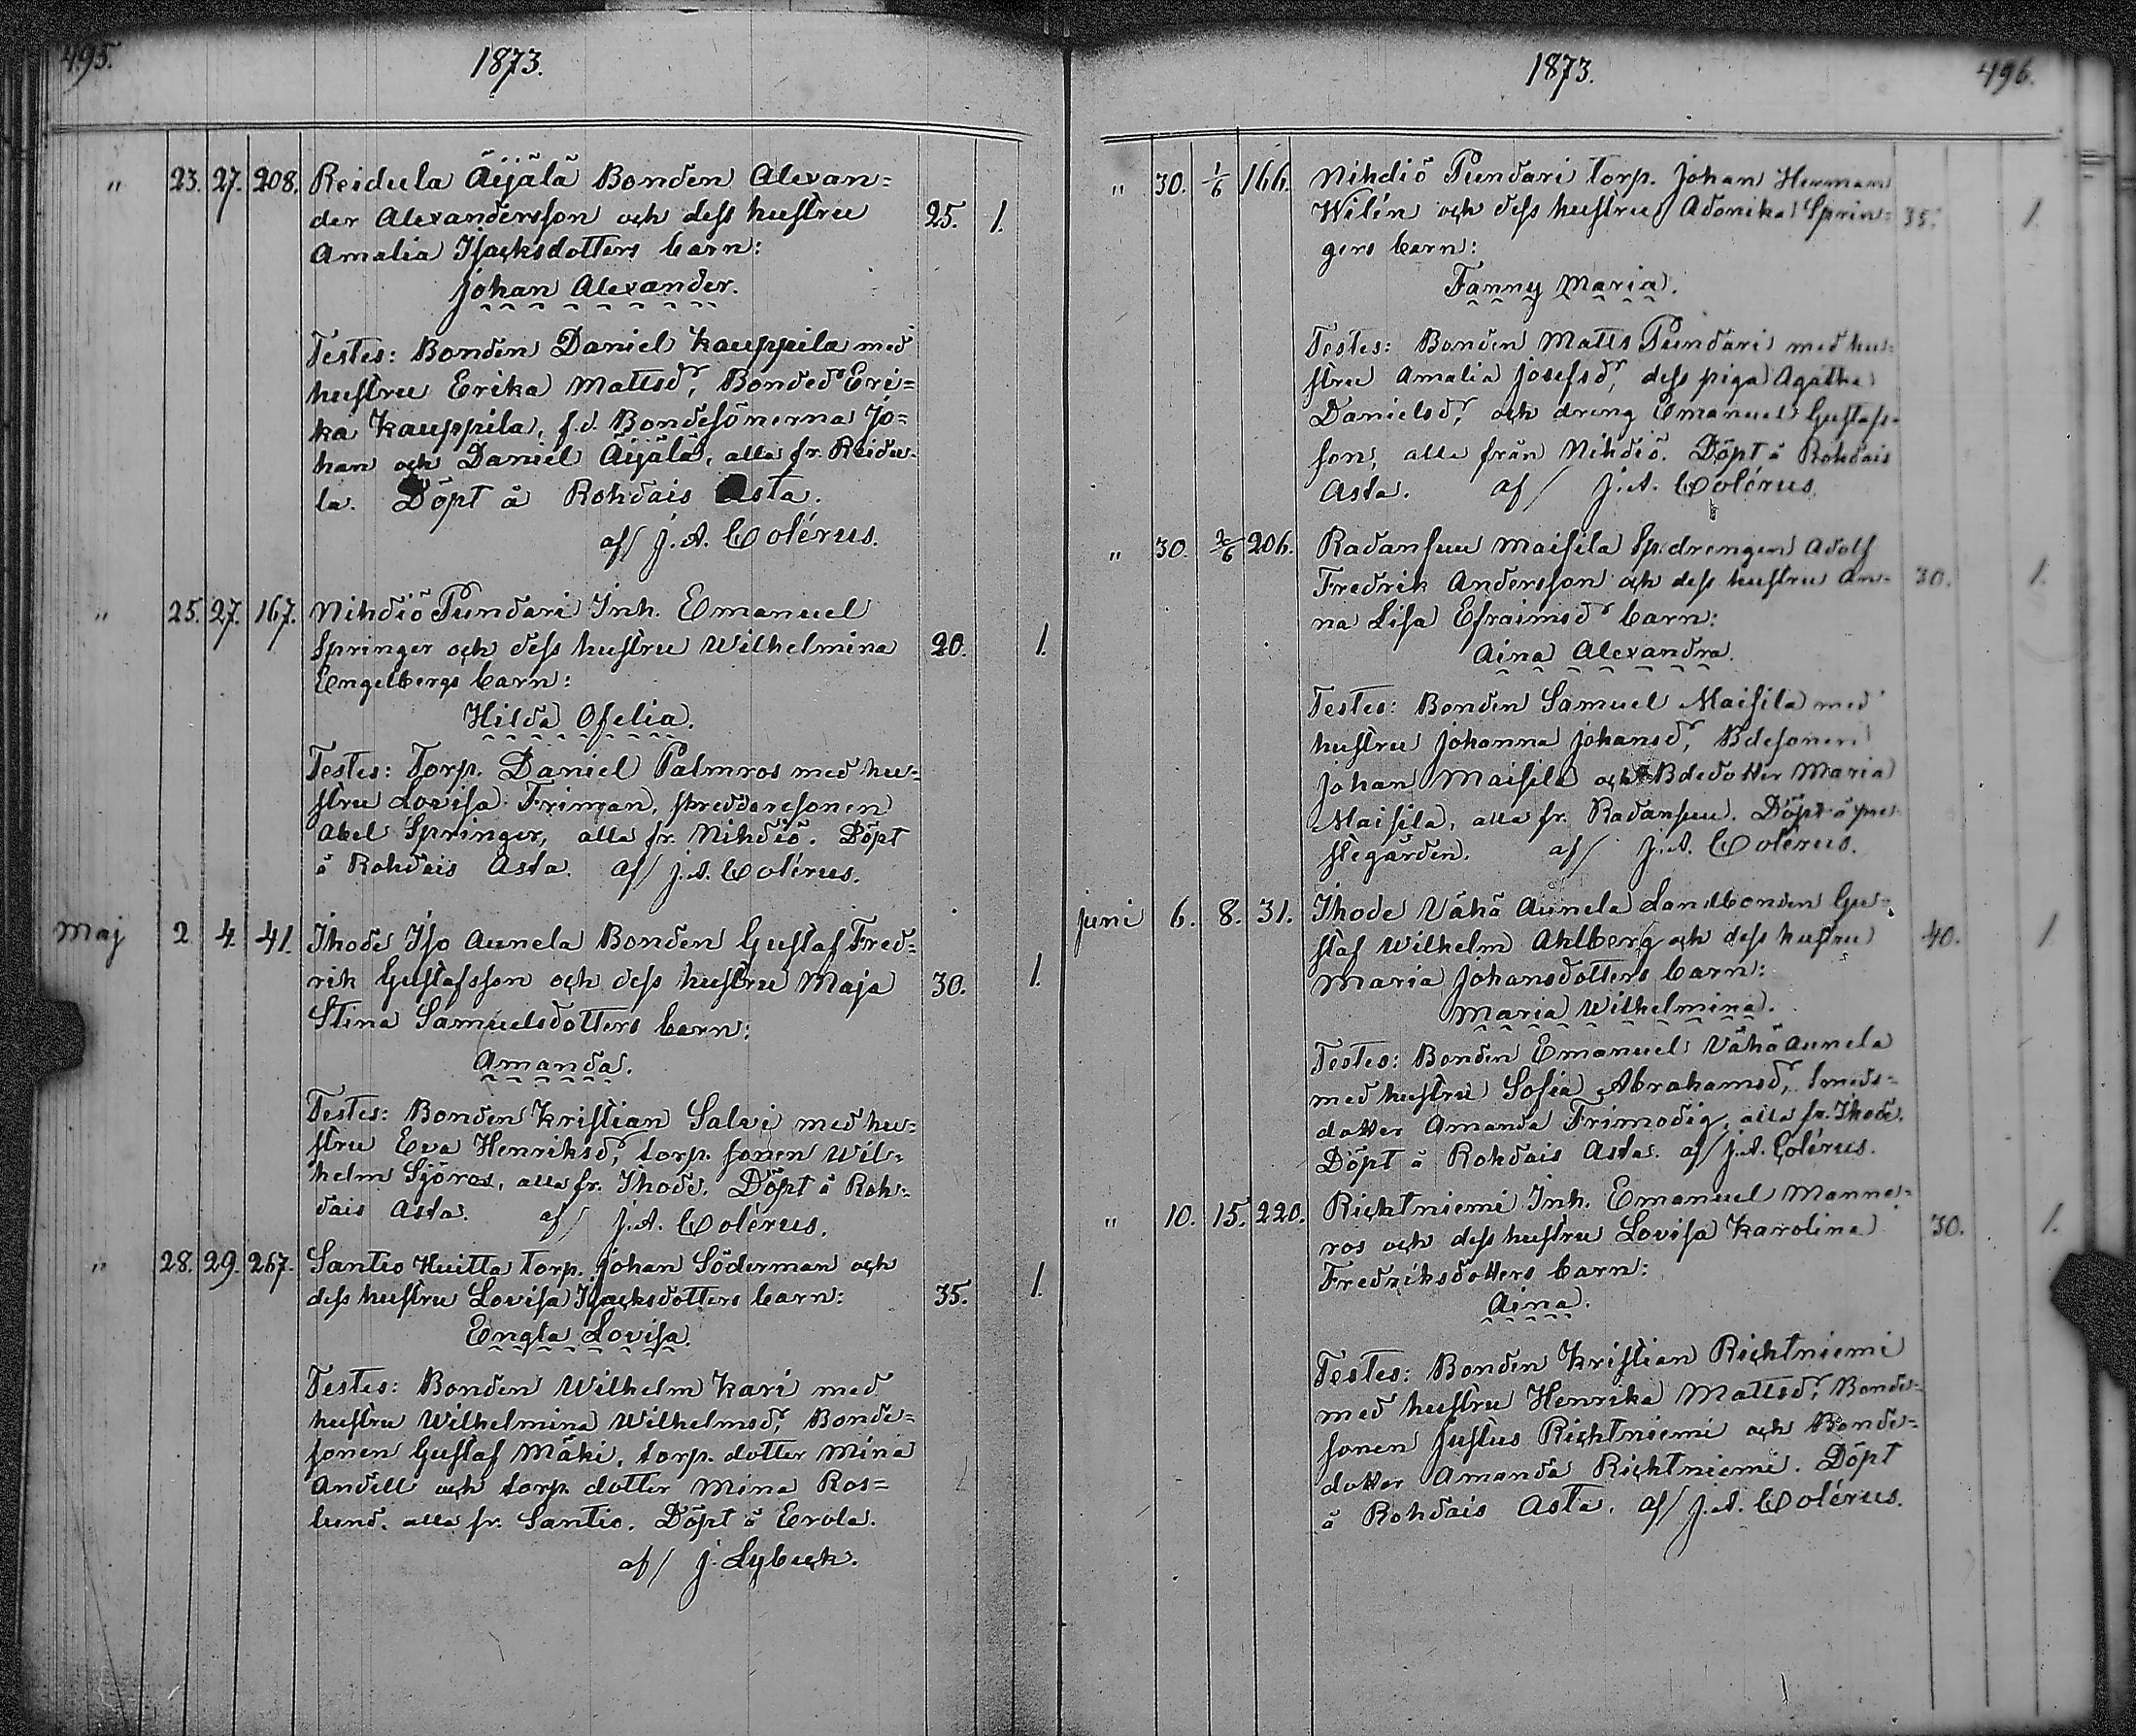 495.
1873.
" 23. 27. 208. Reidula Äijälä Bonden Alexan=
der Alexandersson och dess hustru 25. 1.
Amalia Isacksdotters barn:
Johan Alexander.
Testes: Bonden Daniel Kauppila med
hustru Erika Mattsdr, Bonded Eri=
ka Kauppila, f.d. Bondesönerna Jo=
han och Daniel Äijälä, alla fr. Reidu=
la. Döpt å Rohdais Asta.
af/ J. A. Colérus.
" 25. 27. 167. Nihdiö Pundari Inh. Emanuel
Springer och dess hustru Wilhelmina 20. 1.
Engelbergs barn:
Hilda Ofelia.
Testes: Torp. Daniel Palmros med hu=
stru Lovisa Friman, skreddaresonen
Abel Springer, alla fr. Nihdiö. Döpt
å Rohdais Asta. af/ J. A. Colérus.
Maj 2 4. 41. Ihode Iso Aunela Bonden Gustaf Fred=
rik Gustafsson och dess hustru Maja 30. 1.
Stina Samuelsdotters barn:
Amanda.
Testes: Bonden Kristian Salvi med hu=
stru Eva Henriksdr, torp. sonen Wil=
helm Sjöros, alla fr. Ihode. Döpt å Roh=
dais Asta. af/ J. A. Colérus.
" 28. 29. 267. Santio Huitta torp. Johan Söderman och
dess hustru Lovisa Isacksdotters barn: 35. 1.
Engla Lovisa.
Testes: Bonden Wilhelm Kari med
hustru Wilhelmina Wilhelmsdr, Bonde=
sonen Gustaf Mäki, torp. dotter Mina
Andell och torp. dotter Mina Ros=
lund, alla fr. Santio. Döpt å Erola.
af/ J. Lybeck.
1873.
496.
" 30. 1/6 166. Nihdiö Pundari torp. Johan Herman
Wilén och dess hustru Adonika Sprin= 35. 1.
gers barn:
Fanny Maria.
Testes: Bonden Matts Pundari med hu=
stru Amalia Josefsdr, dess piga Agatha
Danielsdr, och dreng Emanuel Gustafs=
son, alla från Nihdiö. Döpt å Rohdais
Asta. af/ J. A. Colérus.
" 30. 2/6 206. Radansuu Maisila Sp. drengen Adolf
Fredrik Andersson och dess hustru An= 30. 1.
na Lisa Efraimsdr barn:
Aina Alexandra.
Testes: Bonden Samuel Maisila med
hustru Johanna Johansdr, Bdesonen
Johan Maisila och Bdedotter Maria
Maisila, alla fr. Radansuu. Döpt å pre=
stegården. af/ J. A. Colérus.
Juni 6. 8. 31. Ihode Vähä Aunela Landbonden Gu=
staf Wilhelm Ahlberg och dess hustru 40. 1
Maria Johansdotters barn:
Maria Wilhelmina.
Testes: Bonden Emanuel Vähä Aunela
med hustru Sofia Abrahamsdr, smeds=
dotter Amanda Frimodig, alla fr. Ihode.
Döpt å Rohdais Asta. af/ J. A. Colérus.
" 10. 15. 220. Richtniemi Inh. Emanuel Manne=
ros och dess hustru Lovisa Karolina 30. 1.
Fredriksdotters barn:
Aina.
Testes: Bonden Kristian Richtniemi
med hustru Henrika Mattsdr, Bonde=
sonen Justus Richtniemi och Bonde=
dotter Amanda Richtniemi. Döpt
å Rohdais Asta. af/ J. A. Colérus.